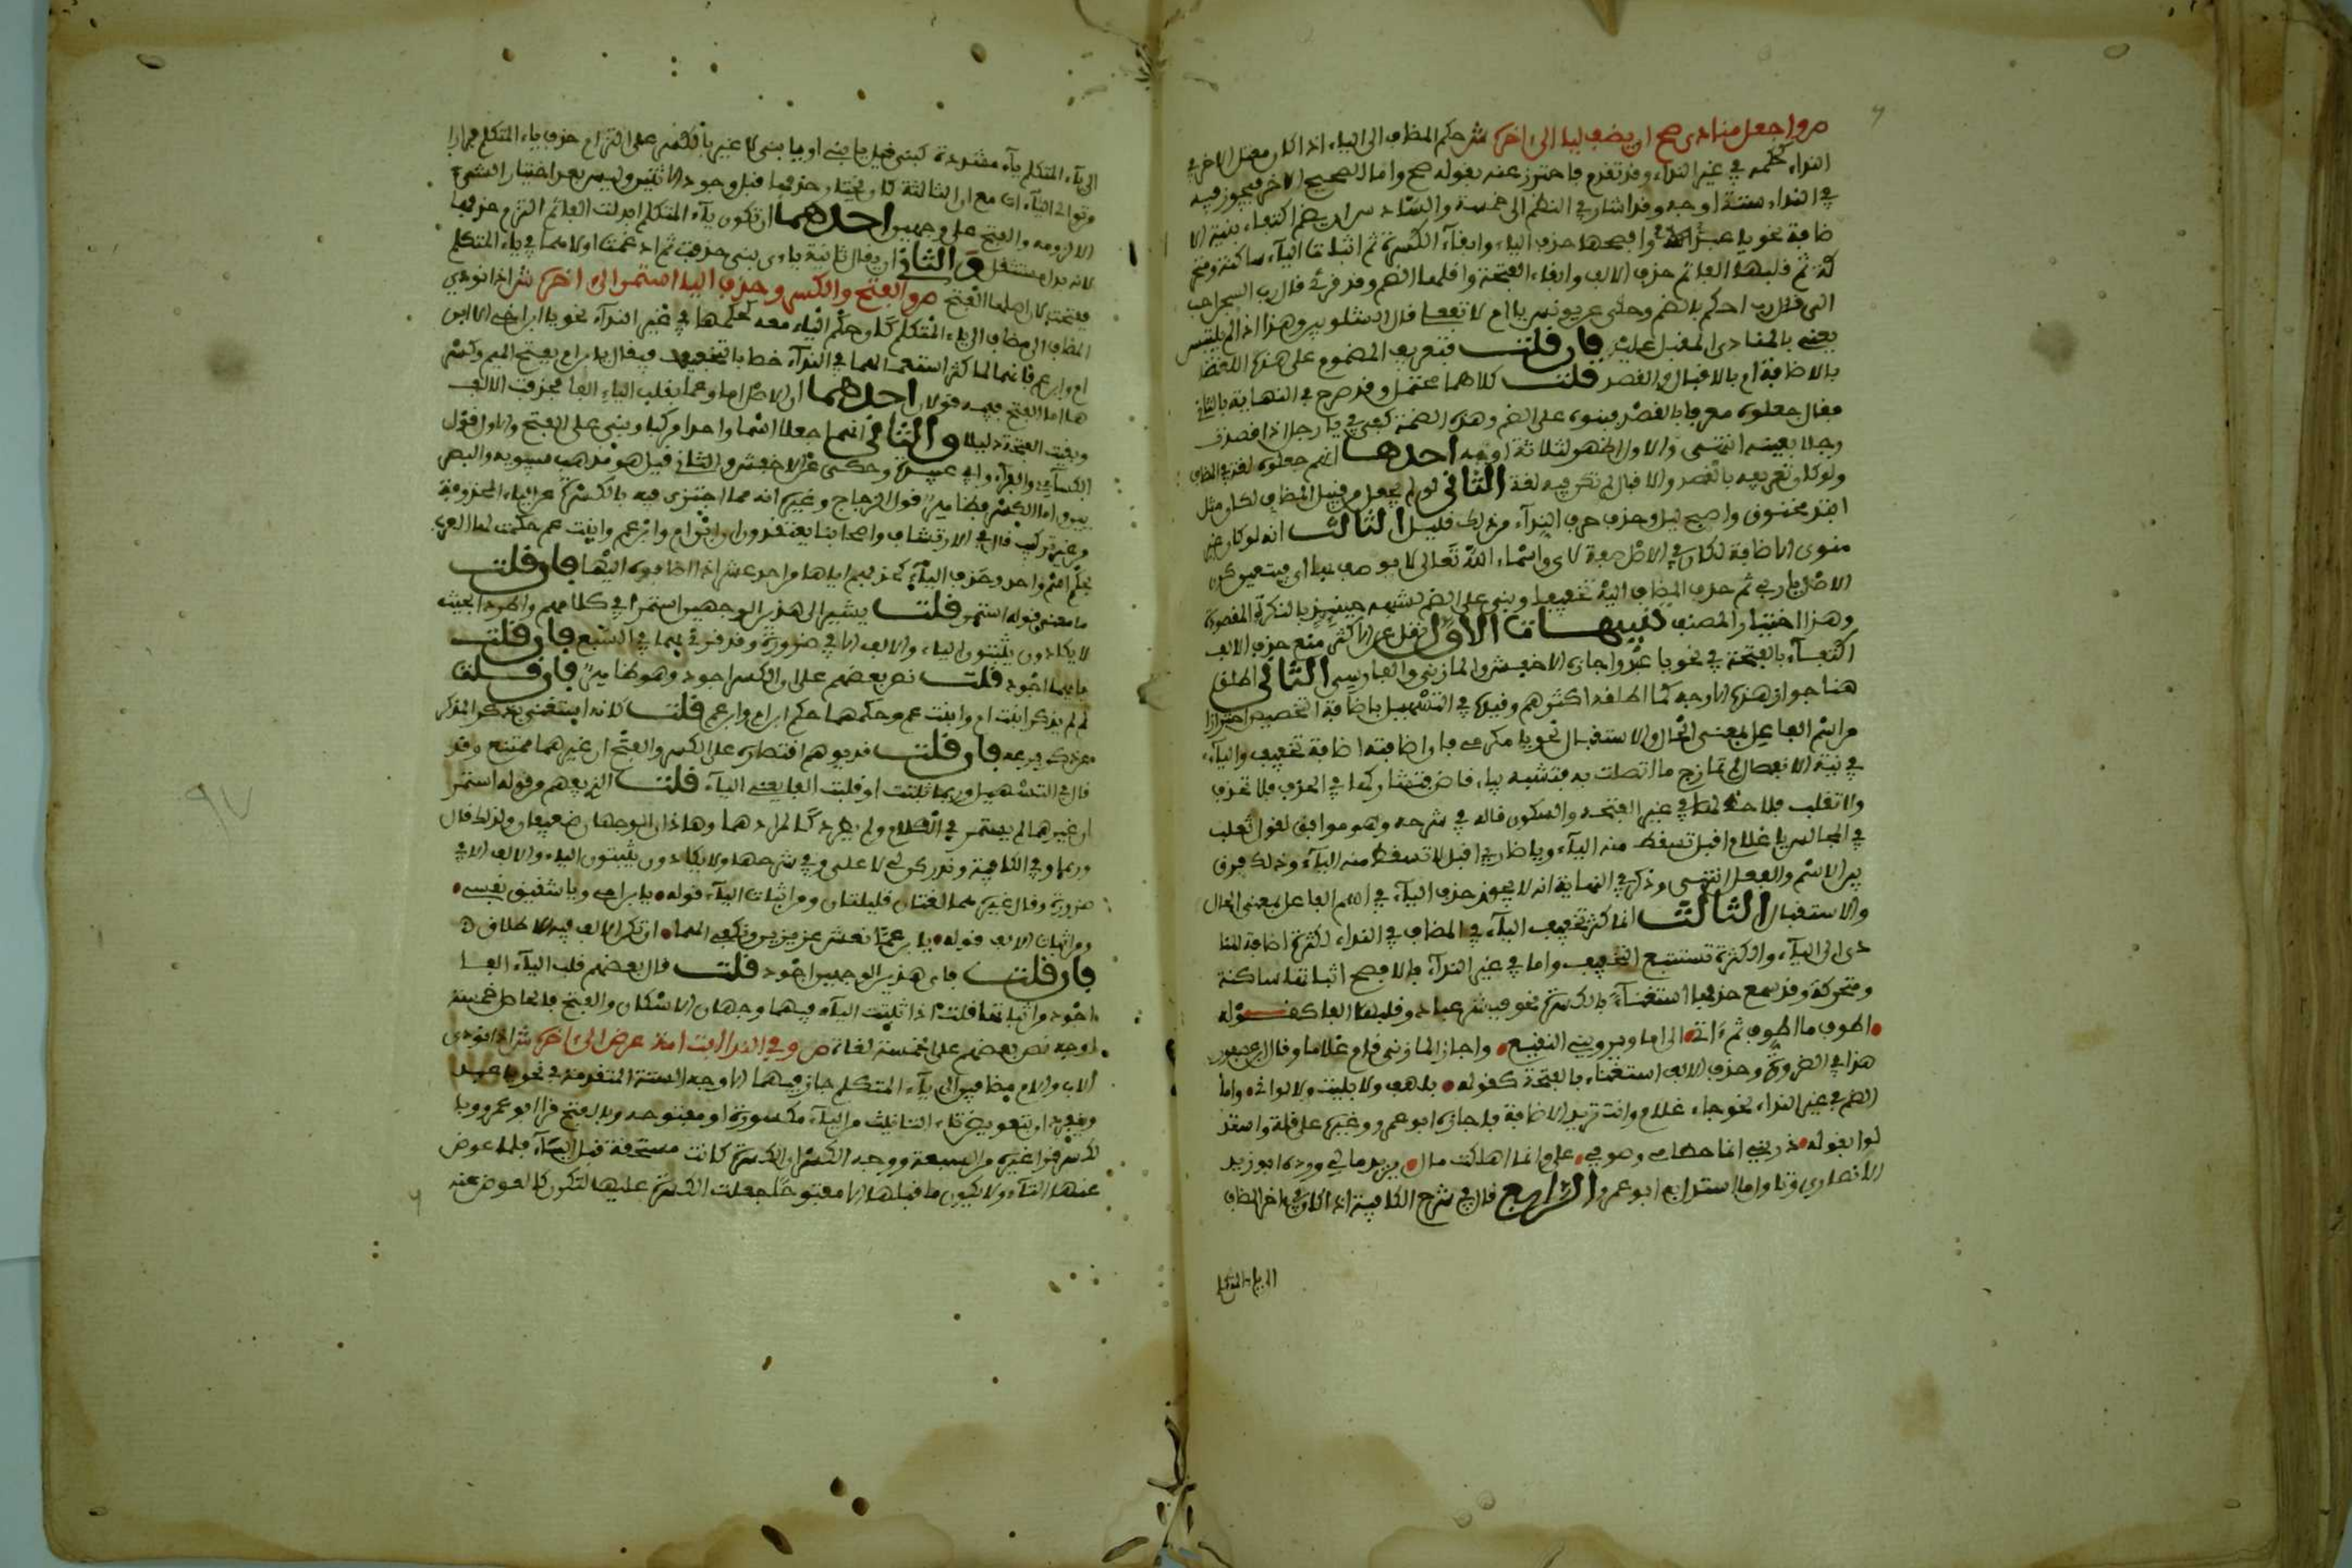 ص واجعل منادى صح ان يضف ليا الى اخره ش حكم المضاف الى الياء اذا كان معتل الاخر في
النداء كحكمه في غير النداء وقد تقدم فاحترز عنه بقوله صح واما الصحيح الاخر فيجوز فيه
في النداء ستة اوجه وقد اشار في النظم الى خمسة والسادس ان يضم اكتفاء بنية الا
ضافة نحو يا عبد وافصحها حذف الياء وابقاء الكسرة ثم اثباتها الياء ساكنة ومتحر
كة ثم قلبها الفا ثم حذف الالف وابقاء الفتحة واقلها الضم وقد قرئ قال رب السجن احب
الي قال رب احكم بالضم وحكى عن يونس يا ام لا تفعلي قال الشلوبين وهذا اذا لم يلتبس
يعني بالمنادى المقبل عليه فان قلت فتعريف المضموم على هذه اللغة
بالاضافة ام بالاقبال والقصد قلت كلاهما محتمل وقد صرح في النهاية بالثاني
فقال جعلوه معرفا بالقصد فبنوه على الضم وهذه الضمة كهي في يا رجل اذا قصدت
رجلا بعينه انتهى والاول اظهر لثلاثة اوجه احدها انهم جعلوه لغة في المضاف
ولو كان تعريفه بالقصد والاقبال لم تكن فيه لغة الثاني لو لم يجعل من قبيل المضاف لكان مثل
افتد مخنوق واصبح ليل وحذف حرف النداء من ذلك قليل الثالث انه لو كان غير
منوي الاضافة لكان في الاصل صفة لاي واسماء الله تعالى لا يوصف بها اي فتعين كون
الاصل يا ربي ثم حذف المضاف اليه تخفيفا وبني على الضم لشبهه حينئذ بالنكرة المقصودة
وهذا اختيار المصنف تنبيهات الاول نقل عن الاكثر منع حذف الالف
اكتفاء بالفتحة في نحو يا عبد واجازه الاخفش والمازني والفارسي الثاني اطلق
هنا جواز هذه الاوجه كما اطلقه اكثرهم وقيده في التسهيل باضافة التخصيص احترازا
من اسم الفاعل بمعنى الحال والاستقبال نحو يا مكرمي فان اضافته اضافة تخفيف والياء
في نية الانفصال لم تمازج ما اتصلت به فتشبه بياء قاض فتشاركها في الحذف فلا تحذف
ولا تقلب فلا حظ لها في غير الفتحة والسكون قاله في شرحه وهو موافق لقول ثعلب
في المجالس يا غلام اقبل تسقط منه الياء ويا ضاربي اقبل لا تسقط منه الياء وذلك فرق
بين الاسم والفعل انتهى وذكر في النهاية انه لا يجوز حذف الياء في اسم الفاعل بمعنى الحال
والاستقبال الثالث انما كثر تخفيف الياء في المضاف في النداء لكثرة اضافة المنا
دى الى الياء والكثرة تستتبع التخفيف واما في غير النداء فالافصح اثباتها ساكنة
ومتحركة وقد سمع حذفها استغناء بالكسرة نحو فبشر عباد وقلبها الفا كقوله
اطوف ما اطوف ثم ءاتي الى اما ويرويني النقيع واجاز المازني قام غلاما وقال ابن عصفور
هذا في الضرورة وحذف الالف استغناء بالفتحة كقوله بلهف ولا بليت ولا لواني واما
الضم في غير النداء نحو جاء غلام وانت تريد الاضافة فاجازه ابو عمرو وغيره على قلة واستد
لوا بقوله ذريني انما خطئي وصوبي علي وانما اهلكت مال يريد مالي ورده ابو زيد
الانصاري وقا واما استدل به ابو عمرو الرابع قال في شرح الكافية اذا كان في اخر المضاف
الى ياء المتكلم
الى ياء المتكلم ياء مشددة كبني قيل يا بني او يا بني لا غير بالكسر على التزام حذف ياء المتكلم فرارا
وتوالي الياءات مع ان الثالثة كان يختار حذفها قبل وجود الاثنتين وليس بعد اختيار الشيء
الا لزومه والفتح على وجهين احدهما ان تكون ياء المتكلم ابدلت الفا ثم التزم حذفها
لانه بدل مستثقل والثاني ان يقال ثانية ياءي بني حذفت ثم ادغمت اولاهما في ياء المتكلم
ففتحت لان اصلها الفتح ص والفتح والكسر وحذف اليا استمر الى اخره ش اذا نودي
المضاف الى مضاف الى ياء المتكلم كان حكم الياء معه كحكمها في غير النداء نحو يا ابن اخي الا ابن
ام وابن عم فانهما لما كثر استعمالهما في النداء خصا بالتخفيف فيقال يا بن ام بفتح الميم وكسر
ها اما الفتح ففيه قولان احدهما ان الاصل اما وعما بقلب الياء الفا فحذفت الالف
وبقيت الفتحة دليلا والثاني انهما جعلا اسما واحدا مركبا وبني على الفتح والاول قول
الكسائي والفراء وابي عبيدة وحكي عن الاخفش والثاني قيل هو مذهب سيبويه والبصر
يين واما الكسر فظاهر قول الزجاج وغيره انه مما اجتزي فيه بالكسرة عن الياء المحذوفة
من غير تركيب قال في الارتشاف واصحابنا يعتقدون ان ابن ام وابن عم وابنت عم حكمت لها العرب
بحكم اسم واحد وحذف الياء كحذفهم اياها من احد عشر اذا اضافوه اليها فان قلت
ما معنى قوله استمر قلت يشير الى هذين الوجهين استمرا في كلامهم واطردا بحيث
لا يكادون يثبتون الياء والالف الا في ضرورة وقد قرئ بهما في السبع فان قلت
فايهما اجود قلت نص بعضهم على ان الكسر اجود وهو ظاهر فان قلت
لم لم يذكر ابنت ام وابنت عم وحكمهما حكم ابن ام وابن عم قلت لانه استغنى بذكر المذكر
عن ذكر فرعه فان قلت قد يوهم اقتصاره على الكسر والفتح ان غيرهما ممتنع وقد
قال في التسهيل وربما ثبتت او قلبت الفا يعني الياء قلت الذي يفهم من قوله استمر
ان غيرهما لم يستمر في الكلام ولم يطرد كاطرادهما وهاذان الوجهان ضعيفان ولذلك قال
وربما وفي الكافية وندر كونه لا على وفي شرحها ولا يكادون يثبتون الياء والالف الا في
ضرورة وقال غيره هما لغتان قليلتان ومن اثبات الياء قوله يا ابن امي ويا شقيق نفسي
ومن اثبات الالف قوله يا بن عما نعش عزيزين ونكفي الهما ان ذكر الالف فيه للاطلاق
فان قلت فاي هذين الوجهين اجود قلت قال بعضهم قلب الياء الفا
اجود من اثباتها قلت اذا ثبتت الياء فيهما وجهان الاسكان والفتح فالحاصل خمسة
اوجه نص بعضهم على خمسة لغات ص وفي الندا ابت امت عرض الى اخره ش اذا نودي
الاب والام مضافين الى ياء المتكلم جاز فيهما الاوجه الستة المتقدمة في نحو يا عبد
وينفرد ان بتعويض تاء التانيث من الياء مكسورة او مفتوحة وبالفتح قرا ابو عمرو وبا
لكسر قرا غيره من السبعة ووجه الكسر ان الكسرة كانت مستحقة قبل الياء فلما عوض
عنها التاء ولا يكون ما قبلها الا مفتوحا جعلت الكسرة عليها لتكون كالعوض عنه
٩٧